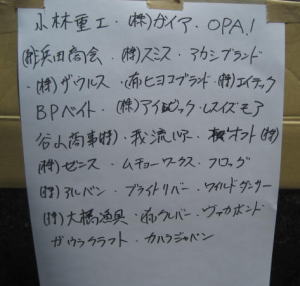 小林重工・(株)ガイア・OPA!
(株)浜田商会・(株)スミス・アカシブランド
・(株)ザウルス・(有)ヒヨコブランド・(株)エイテック
BPベイト・(株)アイビック・レスイズモア
谷山商事(株)・我流ルアー・(株)
(株)ゼニス・ムチョーワークス・フロッグ
(株)アルベン・ブライトリバー・ワイルドダンサー
(株)大橋漁具・(有)クレバー・ヴァガボンド
ガウラクラフト・カハラジャパン